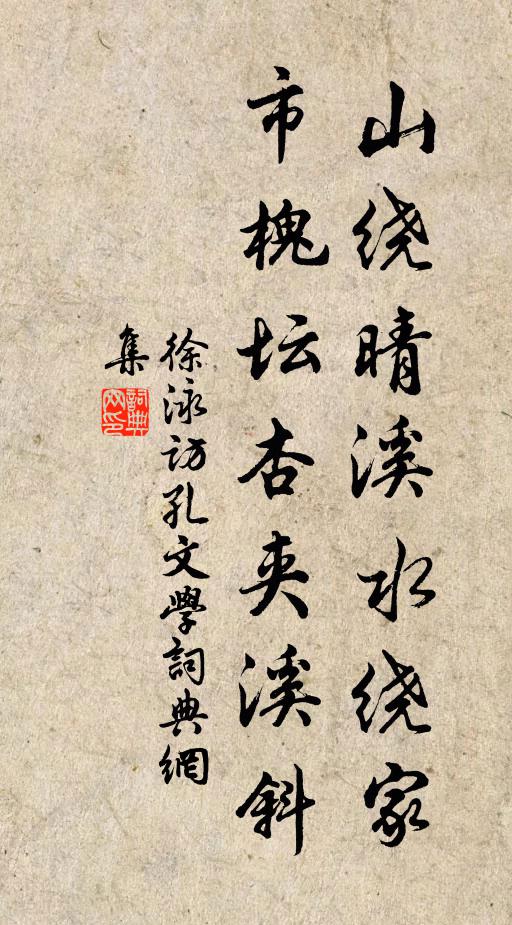 山绕晴溪水绕家
市槐坛杏夹溪斜
徐泳访孔文學詞典網
集
詞典網印